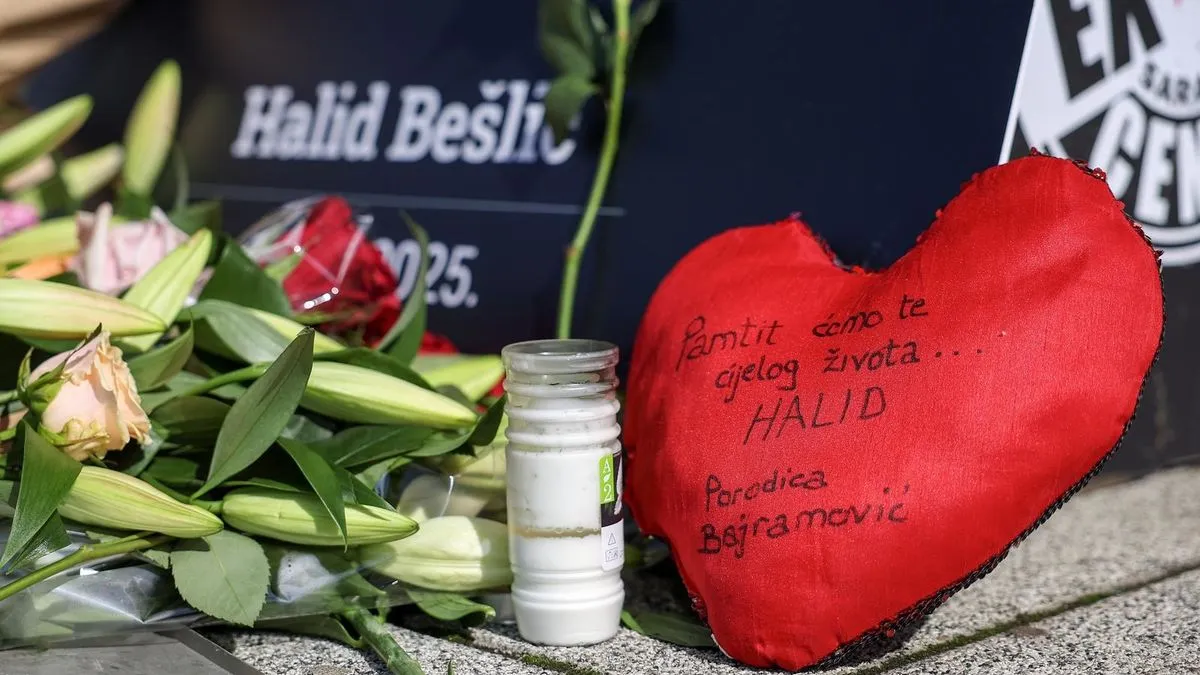 Halid Bešlić
2025.
SARA
CEN
Pamtit ćemo te
cijelog života ....
HALID
Porodica
Bajramović
A
2